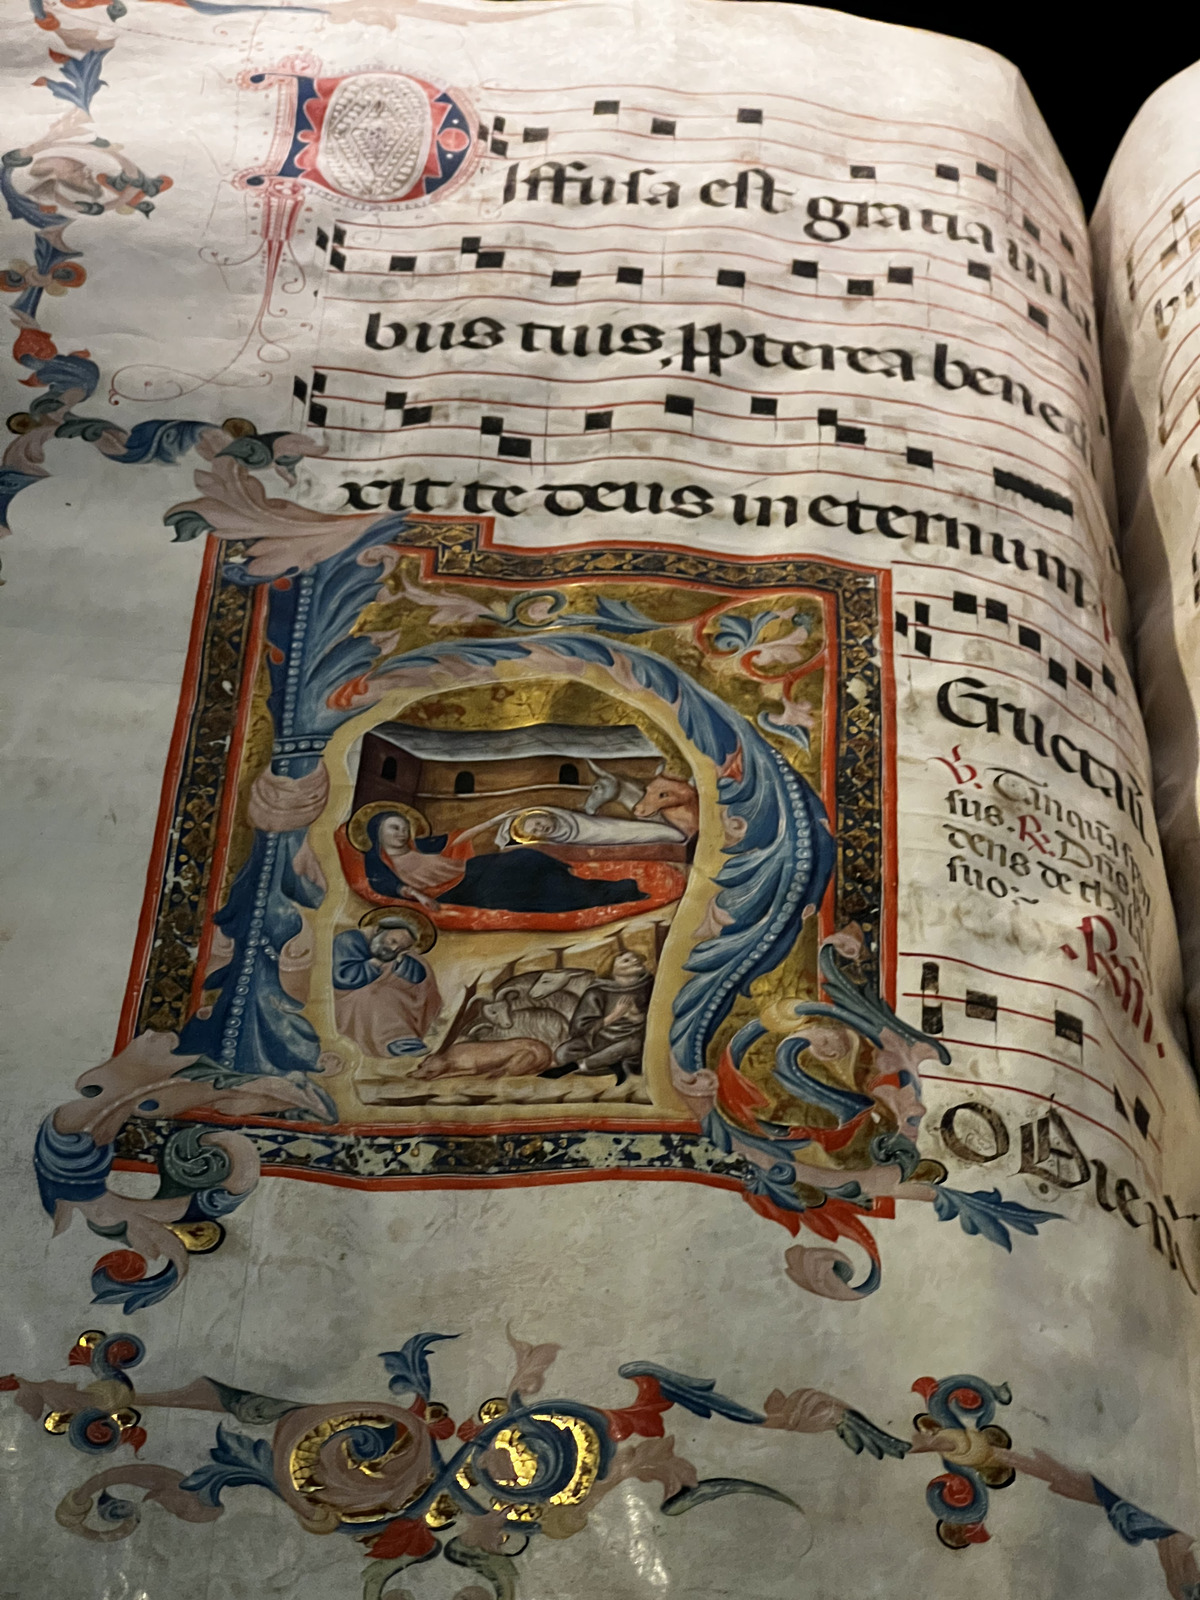 Diffusa est gratia in la
bus tuis, ꝓpterea bene
xit te deus in eternum.
Eructauit
℣. Tanquã spon
sus. ℟. Dñs
dens de thala
suo:~
H